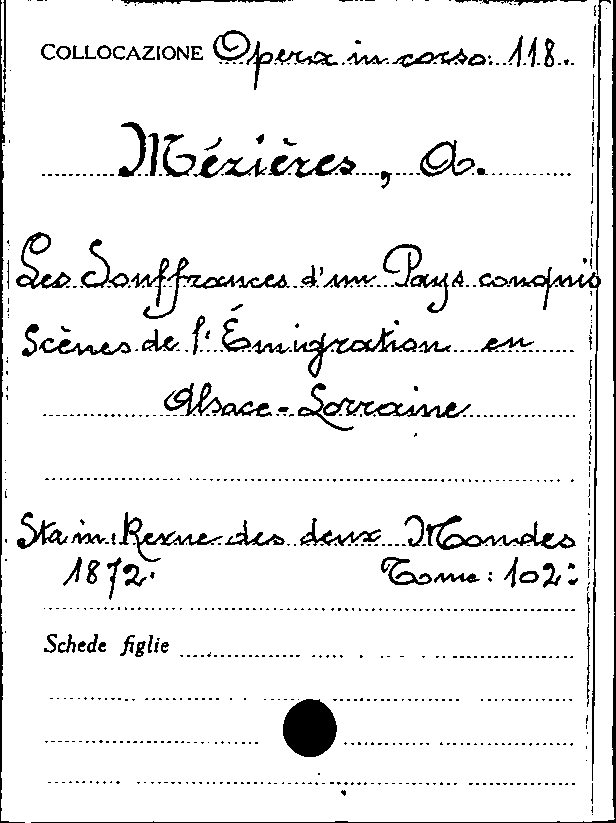 COLLOCAZIONE Opera in corso: 118.
Mézières, A.
Les Souffrances d'un Pays conquis
Scènes de l'Émigration en
Alsace-Lorraine
Sta in: Revue des deux Mondes
1872. Tome: 102:
Schede figlie